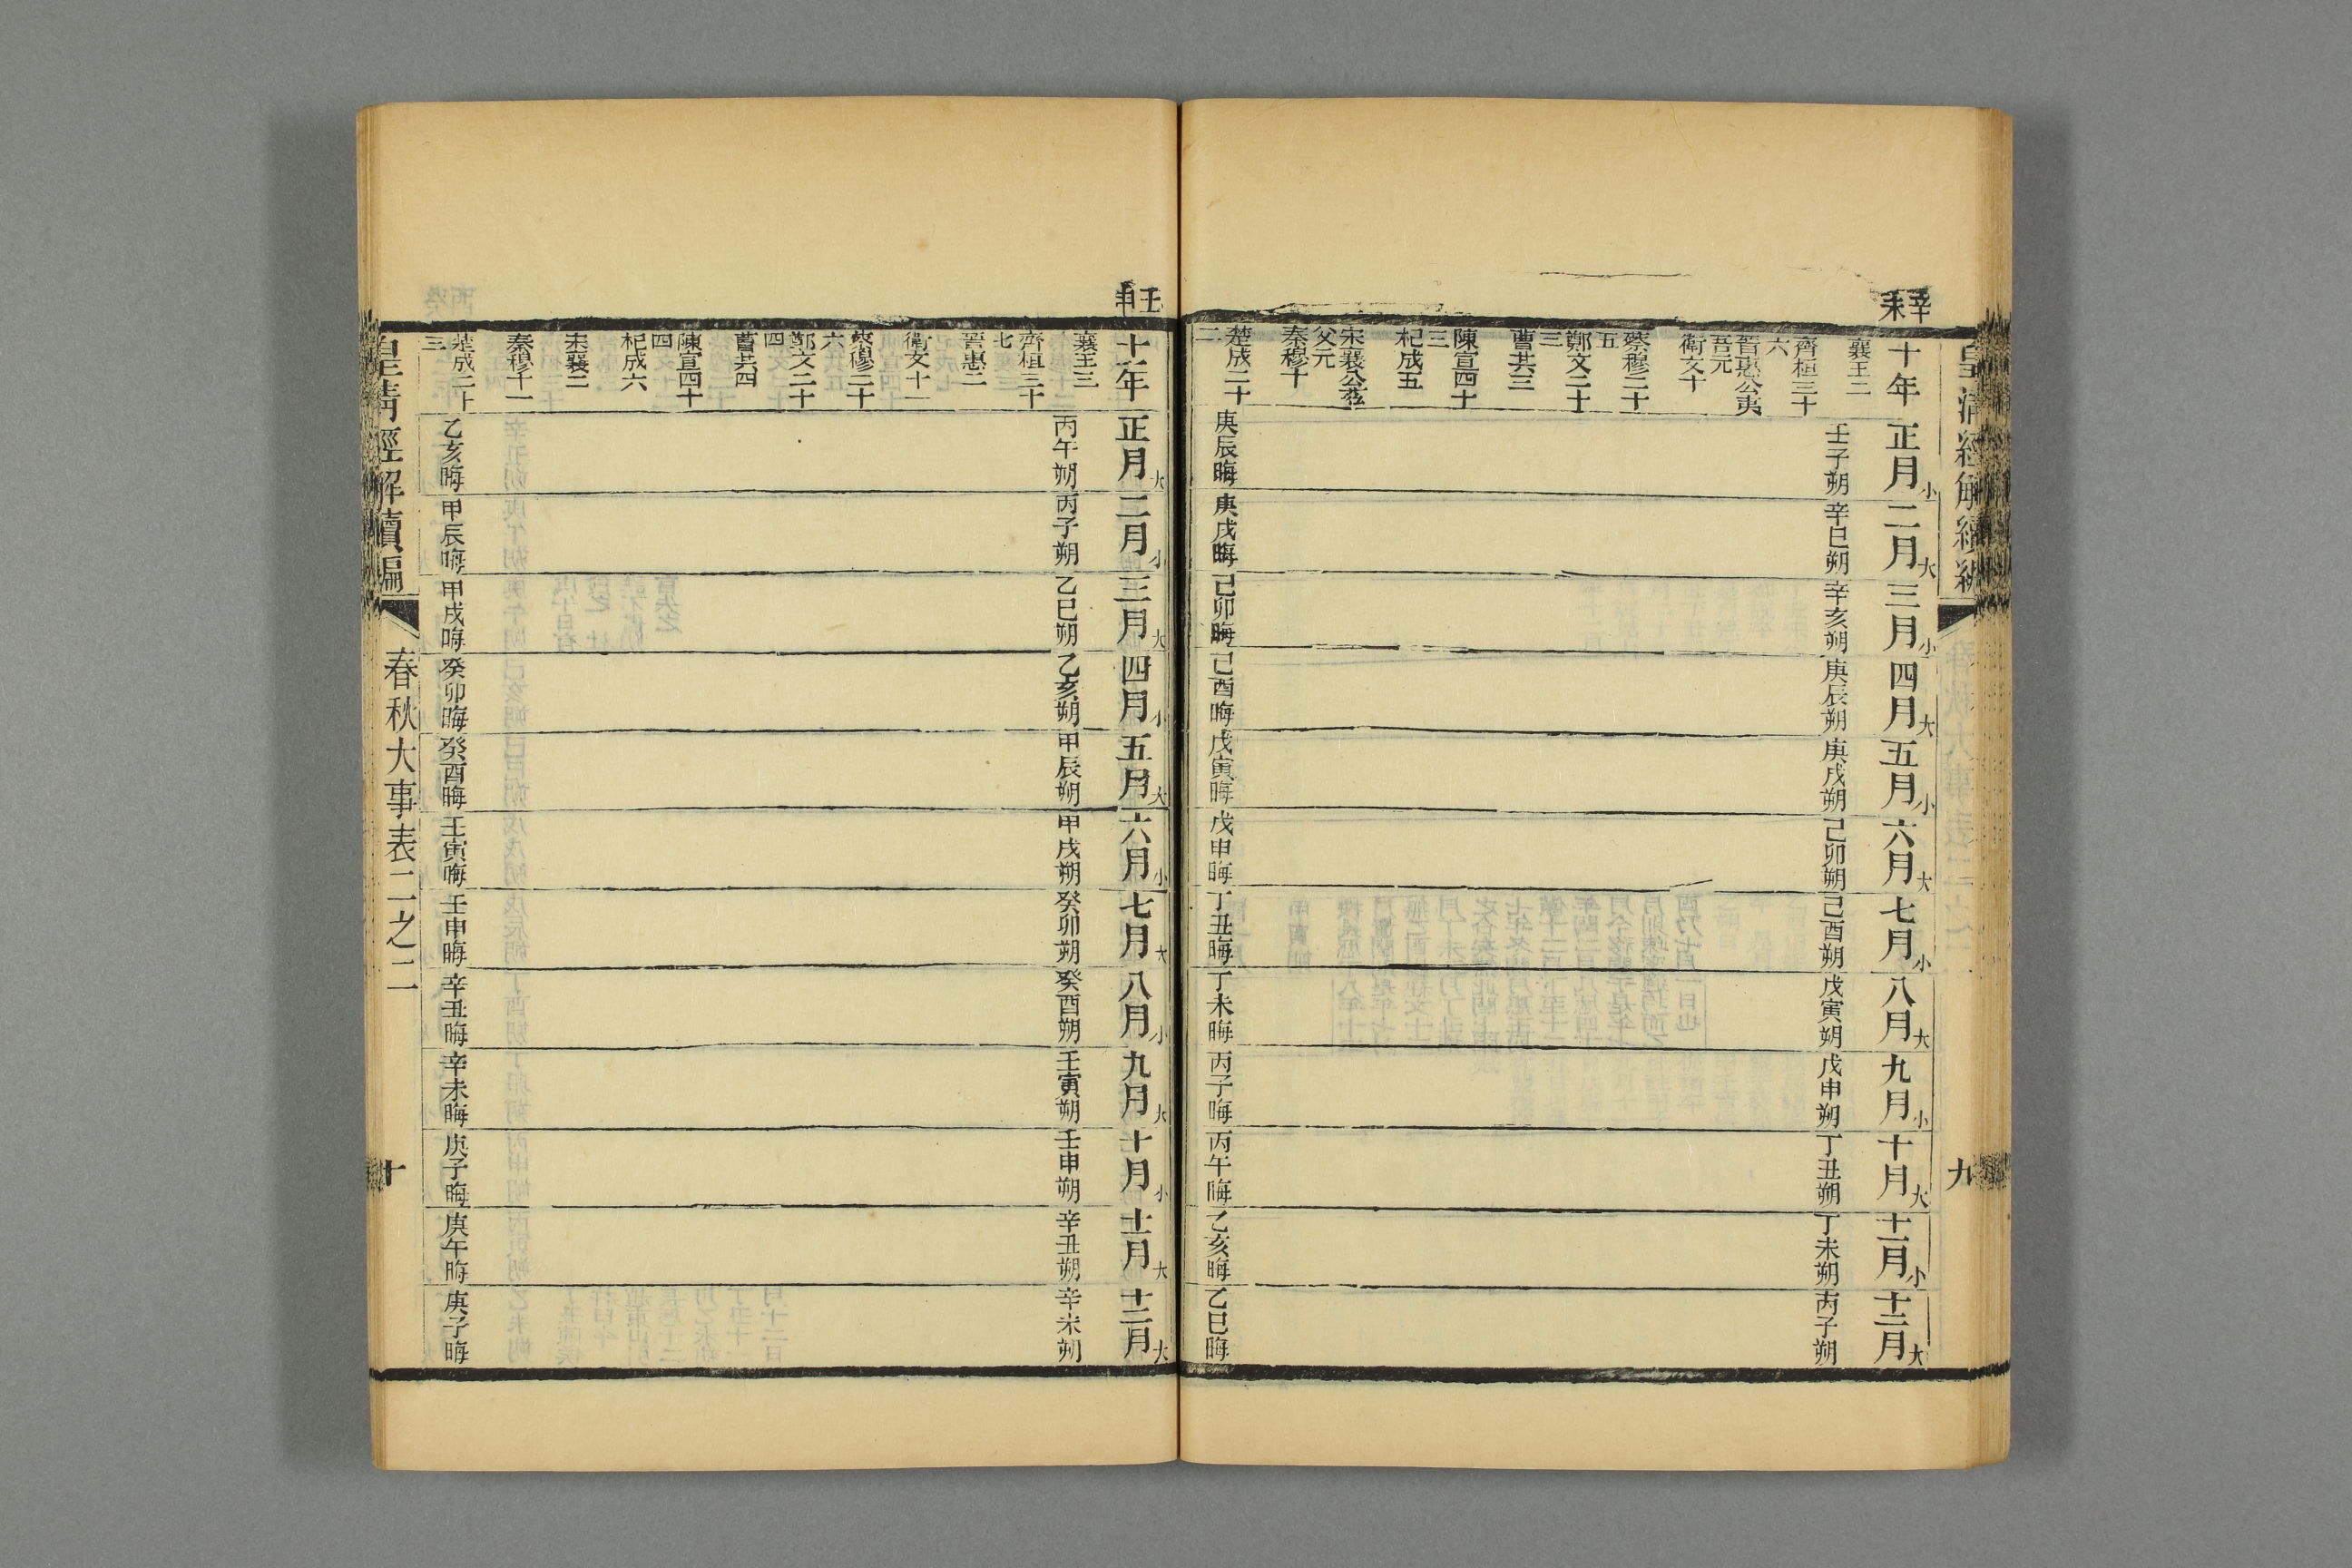 皇清經解續編
九
辛未
十年
襄王二
齊桓三十
六
晉惠公夷
吾元
衛文十
蔡穆二十
五
鄭文二十
三
曹共三
陳宣四十
三
杞成五
宋襄公茲
父元
秦穆十
楚成二十
二
正月小
壬子朔
庚辰晦
二月大
辛巳朔
庚戌晦
三月小
辛亥朔
己卯晦
四月大
庚辰朔
己酉晦
五月小
庚戌朔
戊寅晦
六月大
己卯朔
戊申晦
七月小
己酉朔
丁丑晦
八月大
戊寅朔
丁未晦
九月小
戊申朔
丙子晦
十月大
丁丑朔
丙午晦
十一月小
丁未朔
乙亥晦
十二月大
丙子朔
乙巳晦
壬申
十一年
襄王三
齊桓三十
七
晉惠二
衛文十一
蔡穆二十
六
鄭文二十
四
曹共四
陳宣四十
四
杞成六
宋襄二
秦穆十一
楚成二十
三
正月大
丙午朔
乙亥晦
二月小
丙子朔
甲辰晦
三月大
乙巳朔
甲戌晦
四月小
乙亥朔
癸卯晦
五月大
甲辰朔
癸酉晦
六月小
甲戌朔
壬寅晦
七月大
癸卯朔
壬申晦
八月小
癸酉朔
辛丑晦
九月大
壬寅朔
辛未晦
十月小
壬申朔
庚子晦
十一月大
辛丑朔
庚午晦
十二月大
辛未朔
庚子晦
皇清經解續編
春秋大事表二之二
十